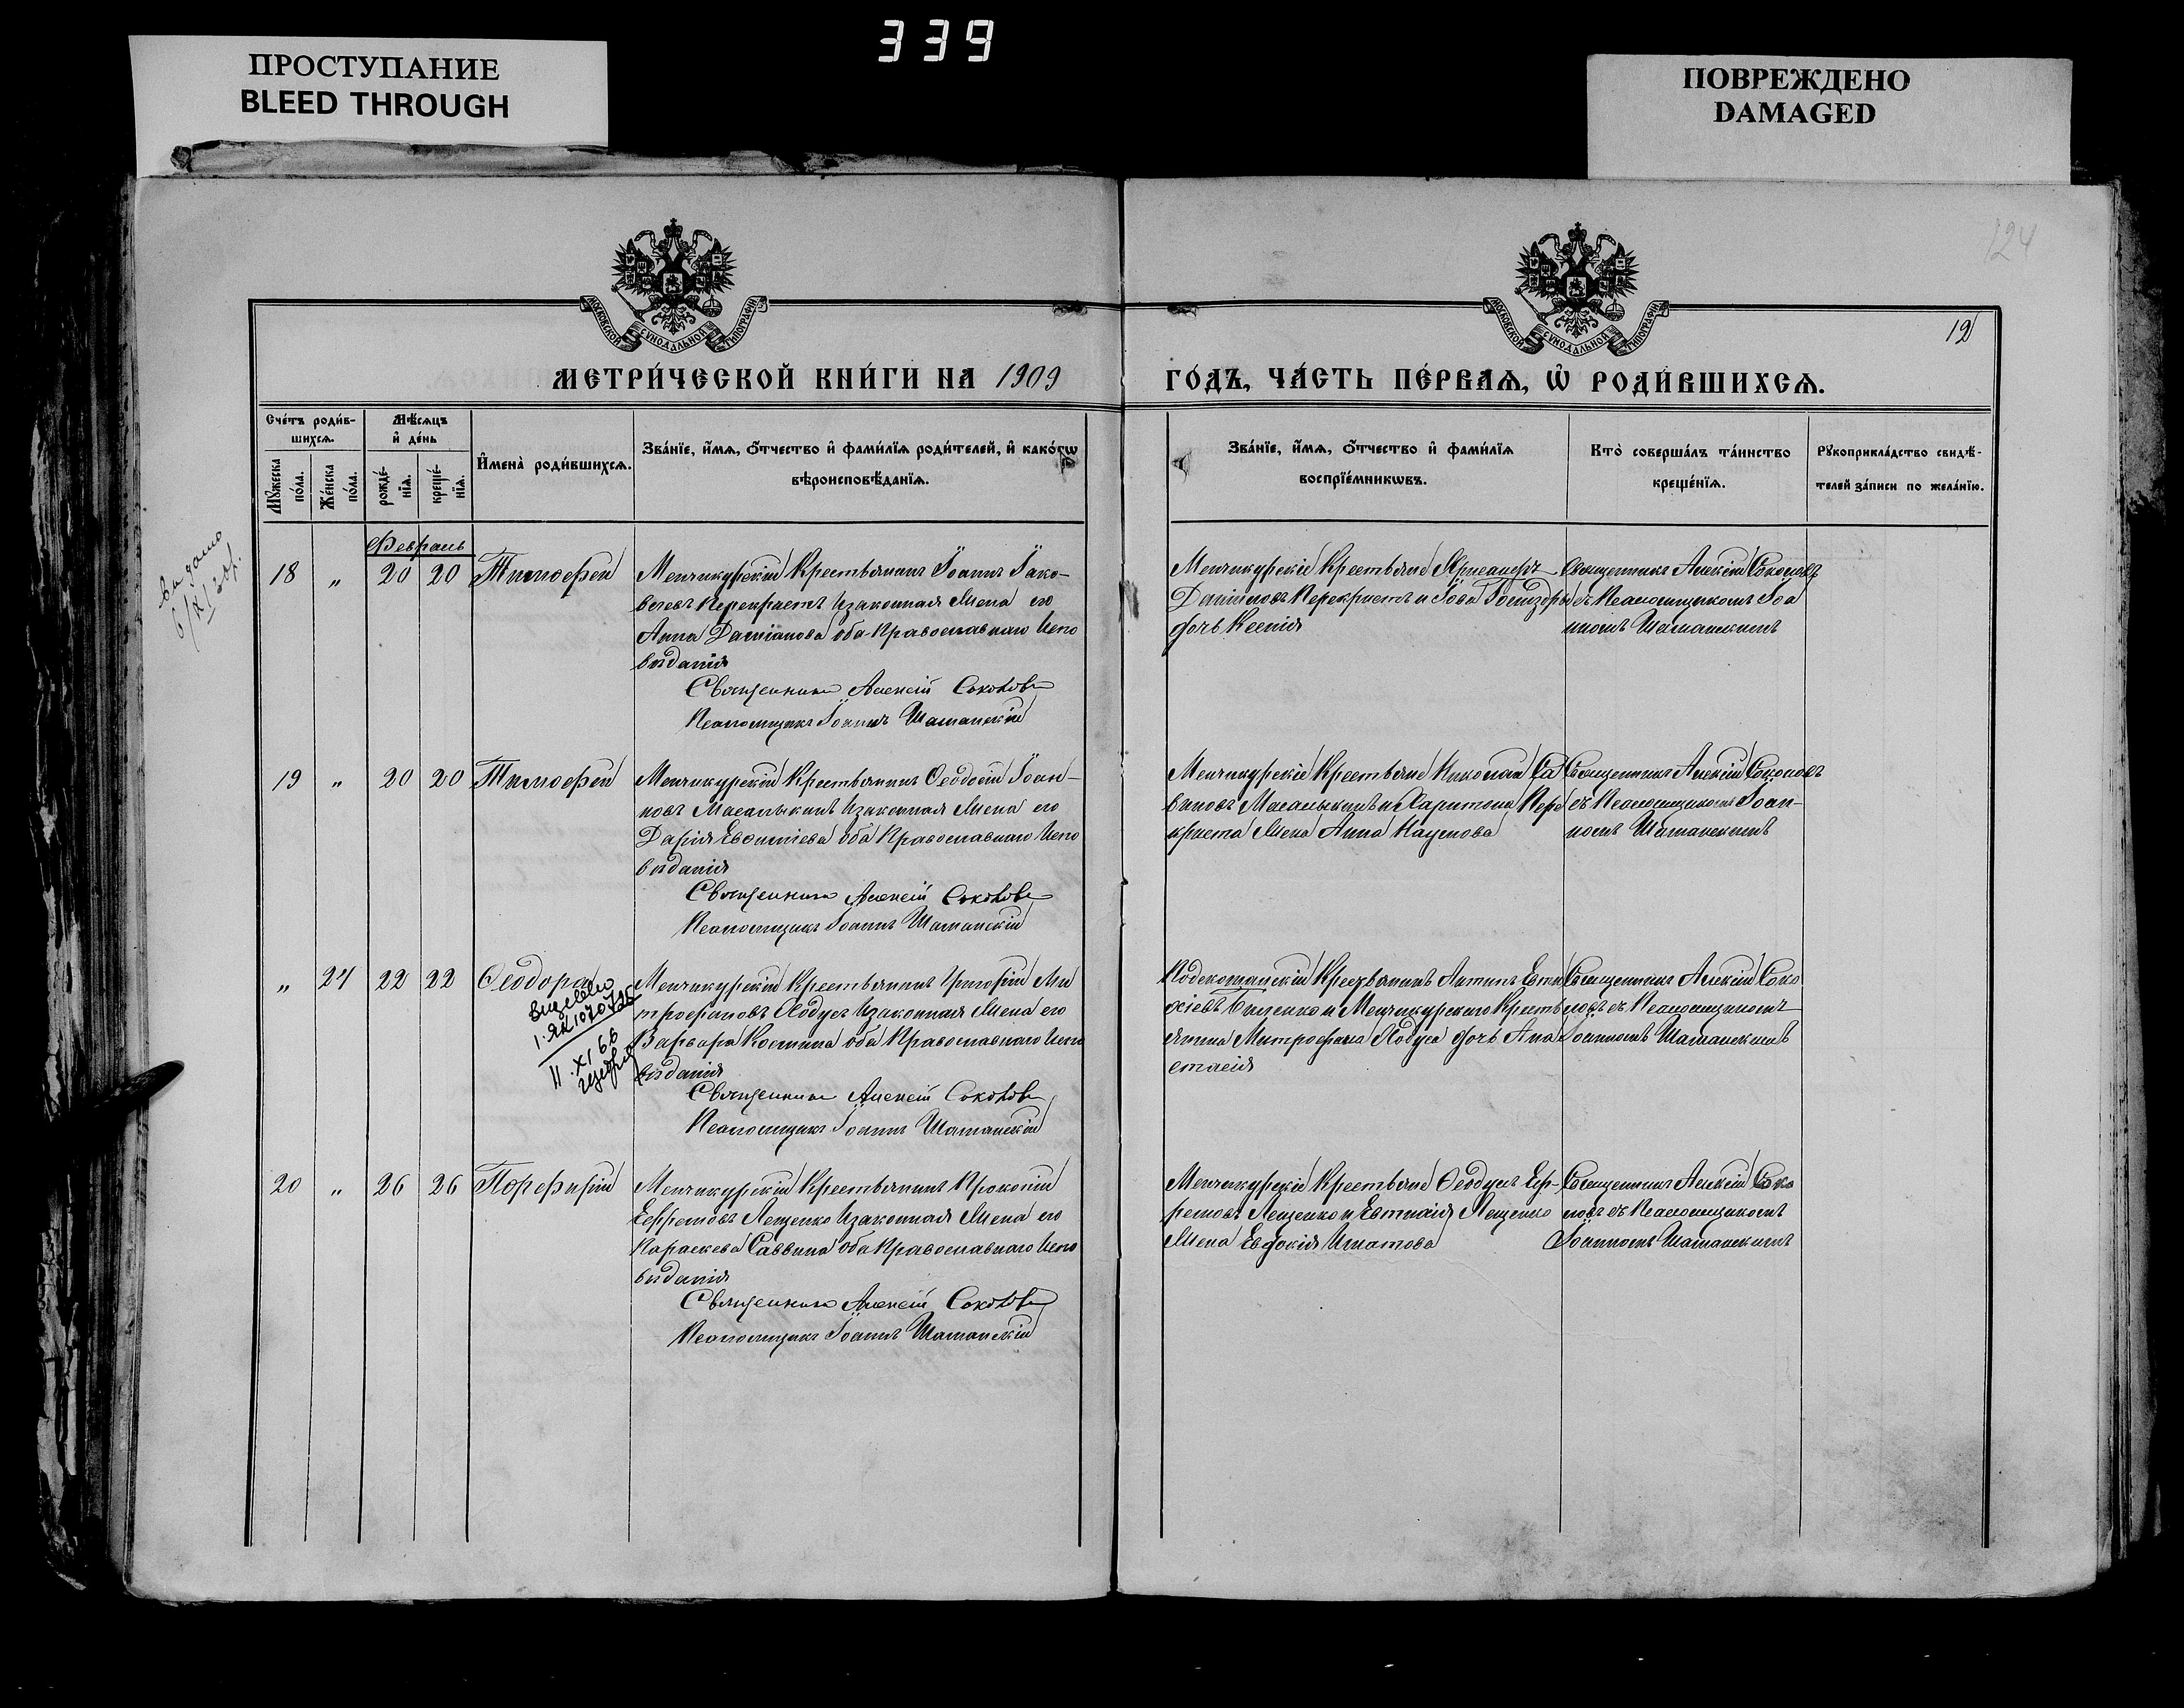 339
ПРОСТУПАНИЕ
BLEED THROUGH
ПОВРЕЖДЕНО
DAMAGED
124
12
МОСКОВСКОЙ СѴНОДАЛЬНОЙ ТИПОГРАФІИ
МОСКОВСКОЙ СѴНОДАЛЬНОЙ ТИПОГРАФІИ
МЕТРИ́ЧЕСКОЙ КНИ́ГИ НА 1909
ГО́ДЪ, ЧА́СТЬ ПЕ́РВАѦ, Ѡ҆ РОДИ́ВШИХСѦ.
Сче́тъ роди́в-
шихсѧ.
Мѣ́сѧцъ
и҆ де́нь
Мꙋ́жеска по́ла.
Же́нска по́ла.
рожде́-
нїѧ.
креще́-
нїѧ.
И҆мена̀ роди́вшихсѧ.
Зва́нїе, и҆́мѧ, ѻ҆́тчество и҆ фами́лїѧ роди́телей, и҆ како́гѡ
вѣроисповѣ́данїѧ.
Зва́нїе, и҆́мѧ, ѻ҆́тчество и҆ фами́лїѧ
воспрїе́мникѡвъ.
Кто̀ соверша́лъ та́инство
креще́нїѧ.
Рꙋкоприкла́дство свидѣ́-
телей за́писи по жела́нїю.
Февраль
18 „ 20 20 Тимофей
Менчикурскій Крестьянинъ Іоаннъ Іако-
влевъ Перекрестъ и законная Жена его
Анна Даміанова оба Православнаго Испо
вѣданія
Священникъ Алексій Соколовъ
Псаломщикъ Іоаннъ Шаманскій
Менчикурскіе Крестьяне
Даніиловъ Перекрестъ и Іова
дочь Ксенія
Священникъ Алексій Соколовъ
съ Псаломщикомъ Іоа
нномъ Шаманскимъ
выдано
19 „ 20 20 Тимофей
Менчикурскій Крестьянинъ Ѳеодосій Іоан-
новъ Масалыкинъ и законная Жена его
Дарія Евфиміева оба Православнаго Испо
вѣданія
Священникъ Алексій Соколовъ
Псаломщикъ Іоаннъ Шаманскій
Менчикурскіе Крестьяне Николай Са
виновъ Масалыкинъ и Харитона Пере
креста Жена Анна Наумова
Священникъ Алексій Соколовъ
съ Псаломщикомъ Іоан-
номъ Шаманскимъ
„ 24 22 22 Ѳеодора
Менчикурскій Крестьянинъ Григорій Ми
трофановъ Кодусъ и законная Жена его
Варвара Космина оба Православнаго Испо
вѣданія
Священникъ Алексій Соколовъ
Псаломщикъ Іоаннъ Шаманскій
Крестьянинъ Антипъ Евти
хіевъ и Менчикурскаго Кресть
янина Митрофана Кодуса дочь Ана
стасія
Священникъ Алексій Соко
ловъ съ Псаломщикомъ
Іоанномъ Шаманскимъ
20 „ 26 26 Порфирій
Менчикурскій Крестьянинъ Прокопій
Ефремовъ Лещенко и законная Жена его
Параскева Саввина оба Православнаго Испо
вѣданія
Священникъ Алексій Соколовъ
Псаломщикъ Іоаннъ Шаманскій
Менчикурскіе Крестьяне Ѳеодулъ Еф-
ремовъ Лещенко и Лещенко
Жена Евдокія Игнатова
Священникъ Алексій Соко
ловъ съ Псаломщикомъ
Іоанномъ Шаманскимъ